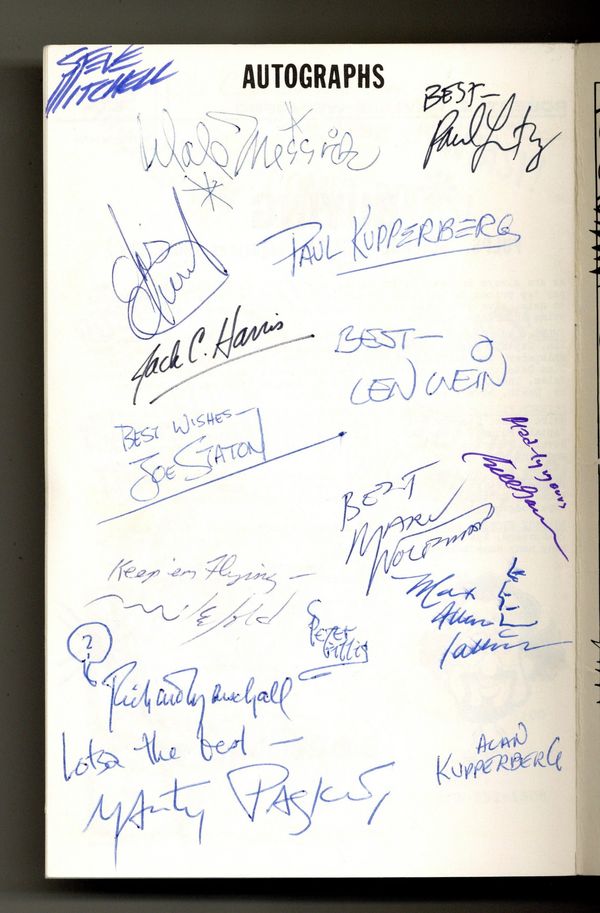 AUTOGRAPHS
STEVE
MITCHELL
BEST—
Paul
PAUL KUPPERBERG
Jack C. Harris
BEST—
LEN WEIN
BEST WISHES—
JOE STATON
Madly yours
BEST
MARV
WOLFMAN
Keep 'em Flying —
Mike Gold
Max
Allan
Collins
PETER
GILLIS
?
Richard
Lotsa the best —
Marty PASKO
ALAN
KUPPERBERG